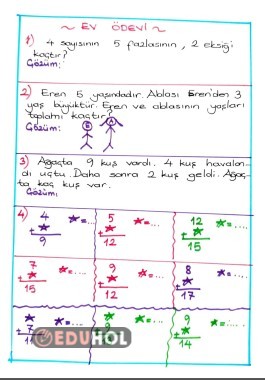 ~ EV ÖDEVİ ~
1) 4 sayısının 5 fazlasının , 2 eksiği
kaçtır?
Çözüm:
2) Eren 5 yaşındadır. Ablası Eren'den 3
yaş büyüktür. Eren ve ablasının yaşları
toplamı kaçtır?
Çözüm:
3) Ağaçta 9 kuş vardı. 4 kuş havalan-
dı uçtu. Daha sonra 2 kuş geldi. Ağaç-
ta kaç kuş var.
Çözüm:
4) 4 + ★ 9 ★=....
5 + ★ 12 ★=....
12 + ★ 15 ★=....
7 + ★ 15 ★=....
9 + ★ 12 ★=....
8 + ★ 17 ★=....
★ + 7 ★=....
★ 9 ★=....
9 + ★ 14 ★=....
EDUHOL